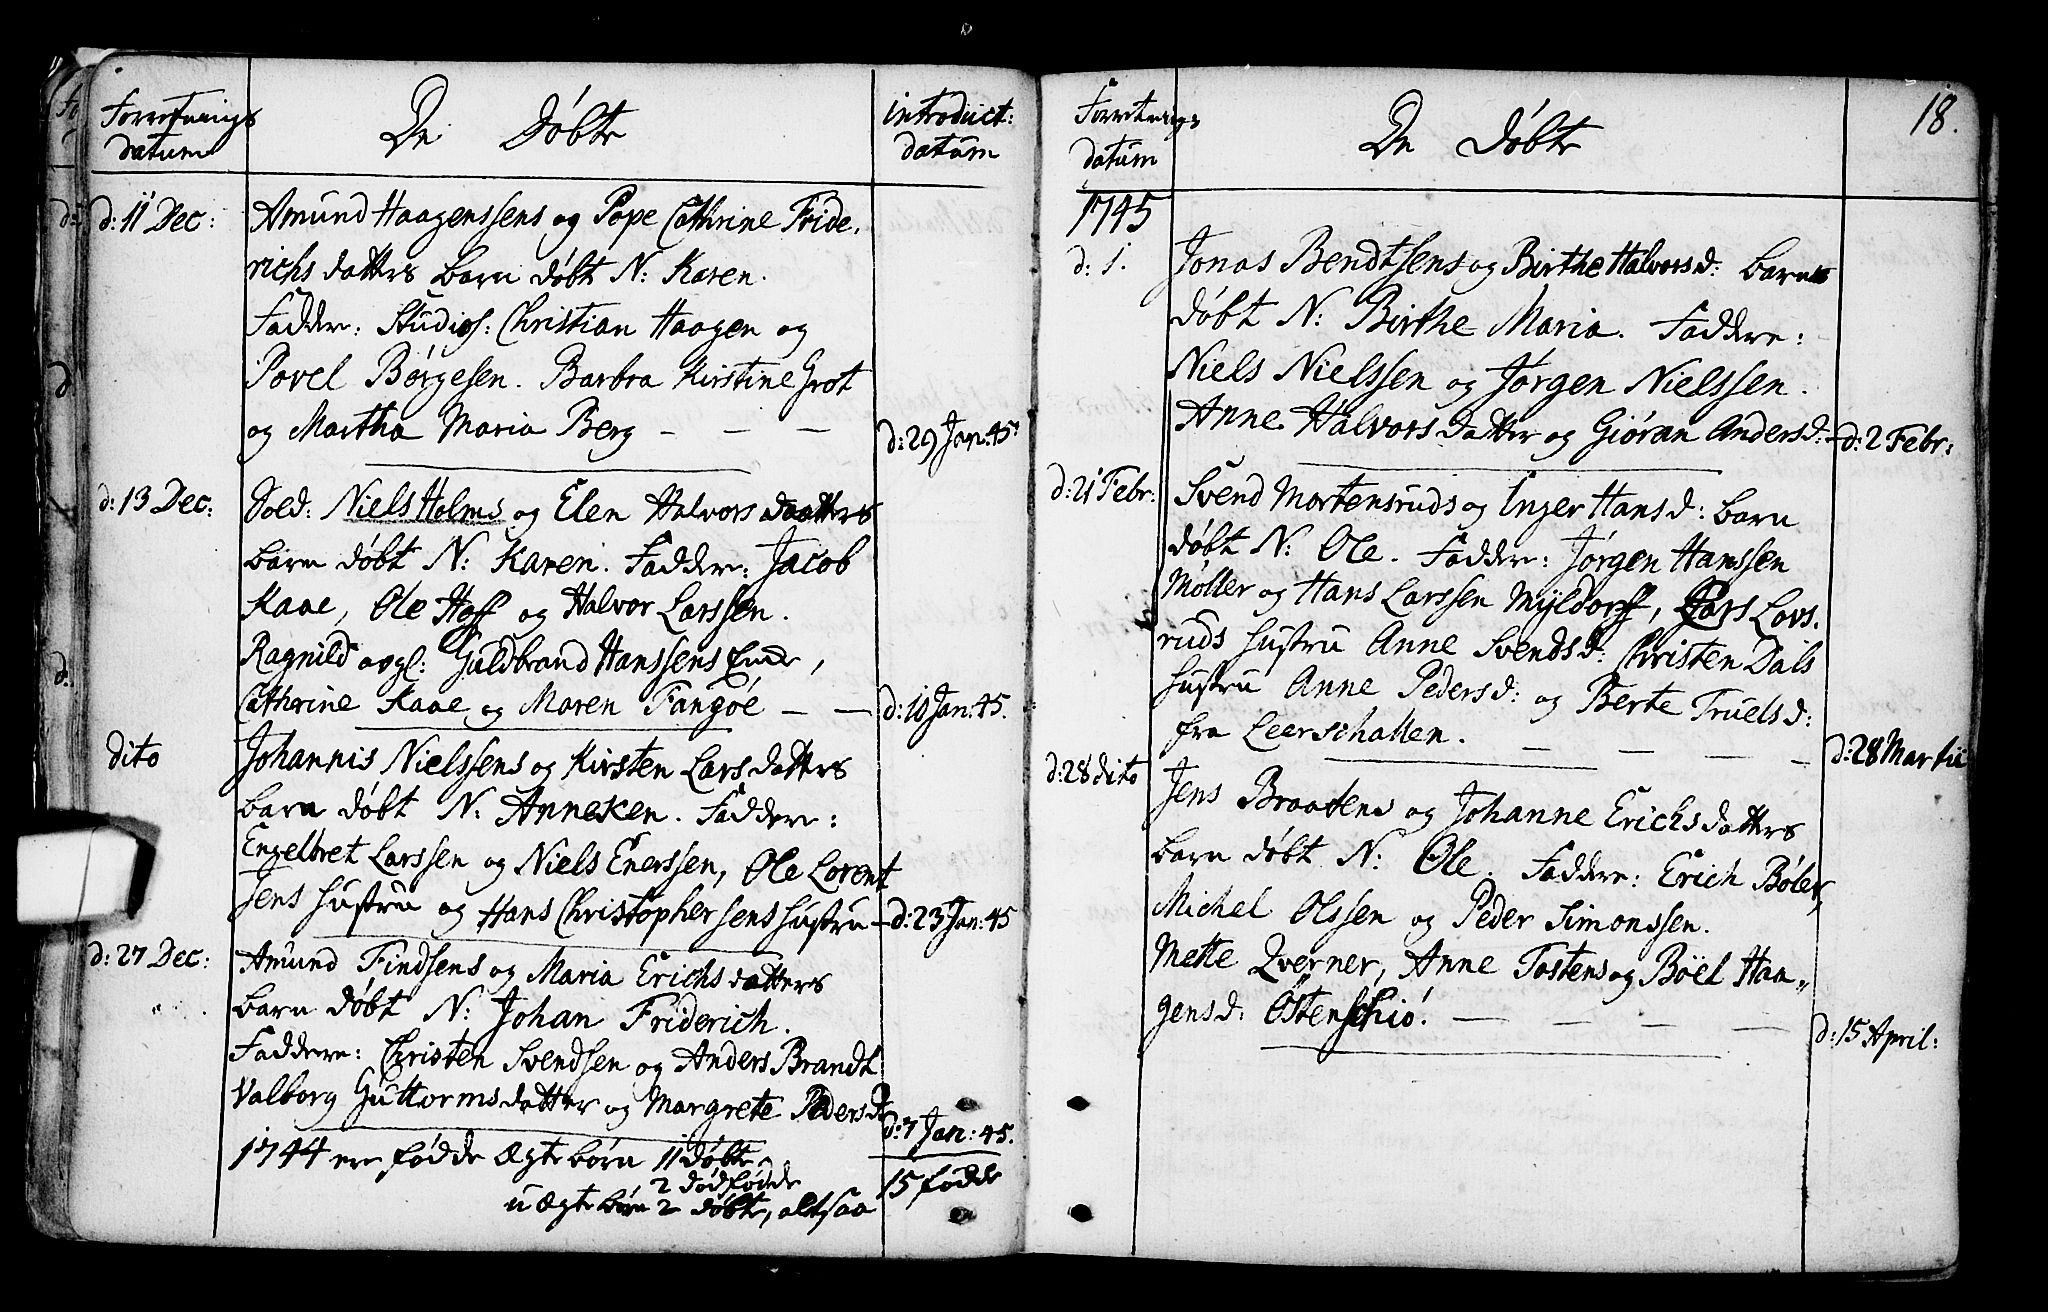 Forretnings datum
De Døbte
introduct: datum
d: 11 Dec:
Amund Haagenssens og Pope Cathrine Fride,
richs datters barn døbt N: Karen.
Faddere: Studios: Christian Haagen og
Povel Børgesen. Barbra Kirstine Grot
og Martha Maria Berg — — —
d: 29 Jan: 45.
d: 13 Dec:
Sold: Niels Holms og Elen Halvors daatters
barn døbt N: Karen. Faddere: Jacob
Kaae, Ole Hoff og Halvor Larssen.
Ragnild Guldbrand Hanssens
Cathrine Kaae og Maren Fangøe — —
d: 10 Jan: 45.
dito
Johannis Nielssens og Kirsten Lars datters
barn døbt N: Anneken. Faddere:
Engelbret Larssen og Niels Enerssen, Ole Lorent
sens hustru og Hans Christophersens hustru —
d: 23 Jan: 45
d: 27 Dec:
Amund Findsens og Maria Erichs datters
barn døbt N: Johan Friderich.
Faddere: Christen Svendsen og Anders Brandt
Valborg Guttorms datter og Margrete Peders d:
d: 7 Jan: 45.
1744 ere fødde Ægte børn 11 døbte
2 dødfødde
u Ægte børn 2 døbte, altsaa
15 fødde
18.
Forretnings datum
De Døbte
1745
d: 1.
Jonas Bendtsens og Birthe Halvorsd: barn
døbt N: Birthe Maria. Faddere:
Niels Nielssen og Jørgen Nielssen.
Anne Halvors datter og Giøran Andersd: —
d: 2 Febr:
d: 21 Febr:
Svend Mortensruds og Inger Hansd: barn
døbt N: Ole. Faddere: Jørgen Hanssen
Møller og Hans Larssen Myldorff, Lars Lovs,
ruds hustru Anne Svendsd: Christen Dals
hustru Anne Pedersd: og Berte Truelsd:
fra Leerschallen. — — — —
d: 28 Martii
d: 28 dito
Jens Braatens og Johanne Erichs datters
barn døbt N: Ole. Faddere: Erich Bøler,
Michel Olssen og Peder Simonssen.
Mette Qverner, Anne Tostens og Böel Haa„
gensd: Østenschiø. — — — —
d: 15 April: